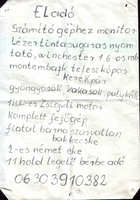 Eladó
Számító géphez monitor
Lézertintasugaras nyom
tató, winchester 1.6 os mb
montenbájk teleszkópos
kerékpár
gyöngyösök kakasok pulykák
1 literes Zsiguli motor
komplett fejőgép
fiatal barna szarvatlan
bakkecske
1-es német eke
11 hold legelő bérbe adó
06303910382